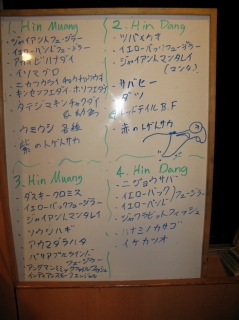 1. Hin Muang
ジャイアントフュージラー
イエローバンドフュージラー
イソマグロ
ウミウシ 各種
紫のトゲトサカ
2. Hin Dang
ツバメウオ
イエローバックフュージラー
ジャイアントマンタレイ
(マンタ)
サバヒー
ダツ
レッドテイルB.F
赤のトゲトサカ
3. Hin Muang
ダスキークロミス
イエローバックフュージラー
ジャイアントマンタレイ
ツウシハギ
アカマダラハタ
バリアブルラインド
フュージラー
インディアンスモークエンジェル
4. Hin Dang
ニジョウサバ
イエローバックフュージラー
イエローバンド
ジャワラビットフィッシュ
ハナミノカサゴ
イケカツオ